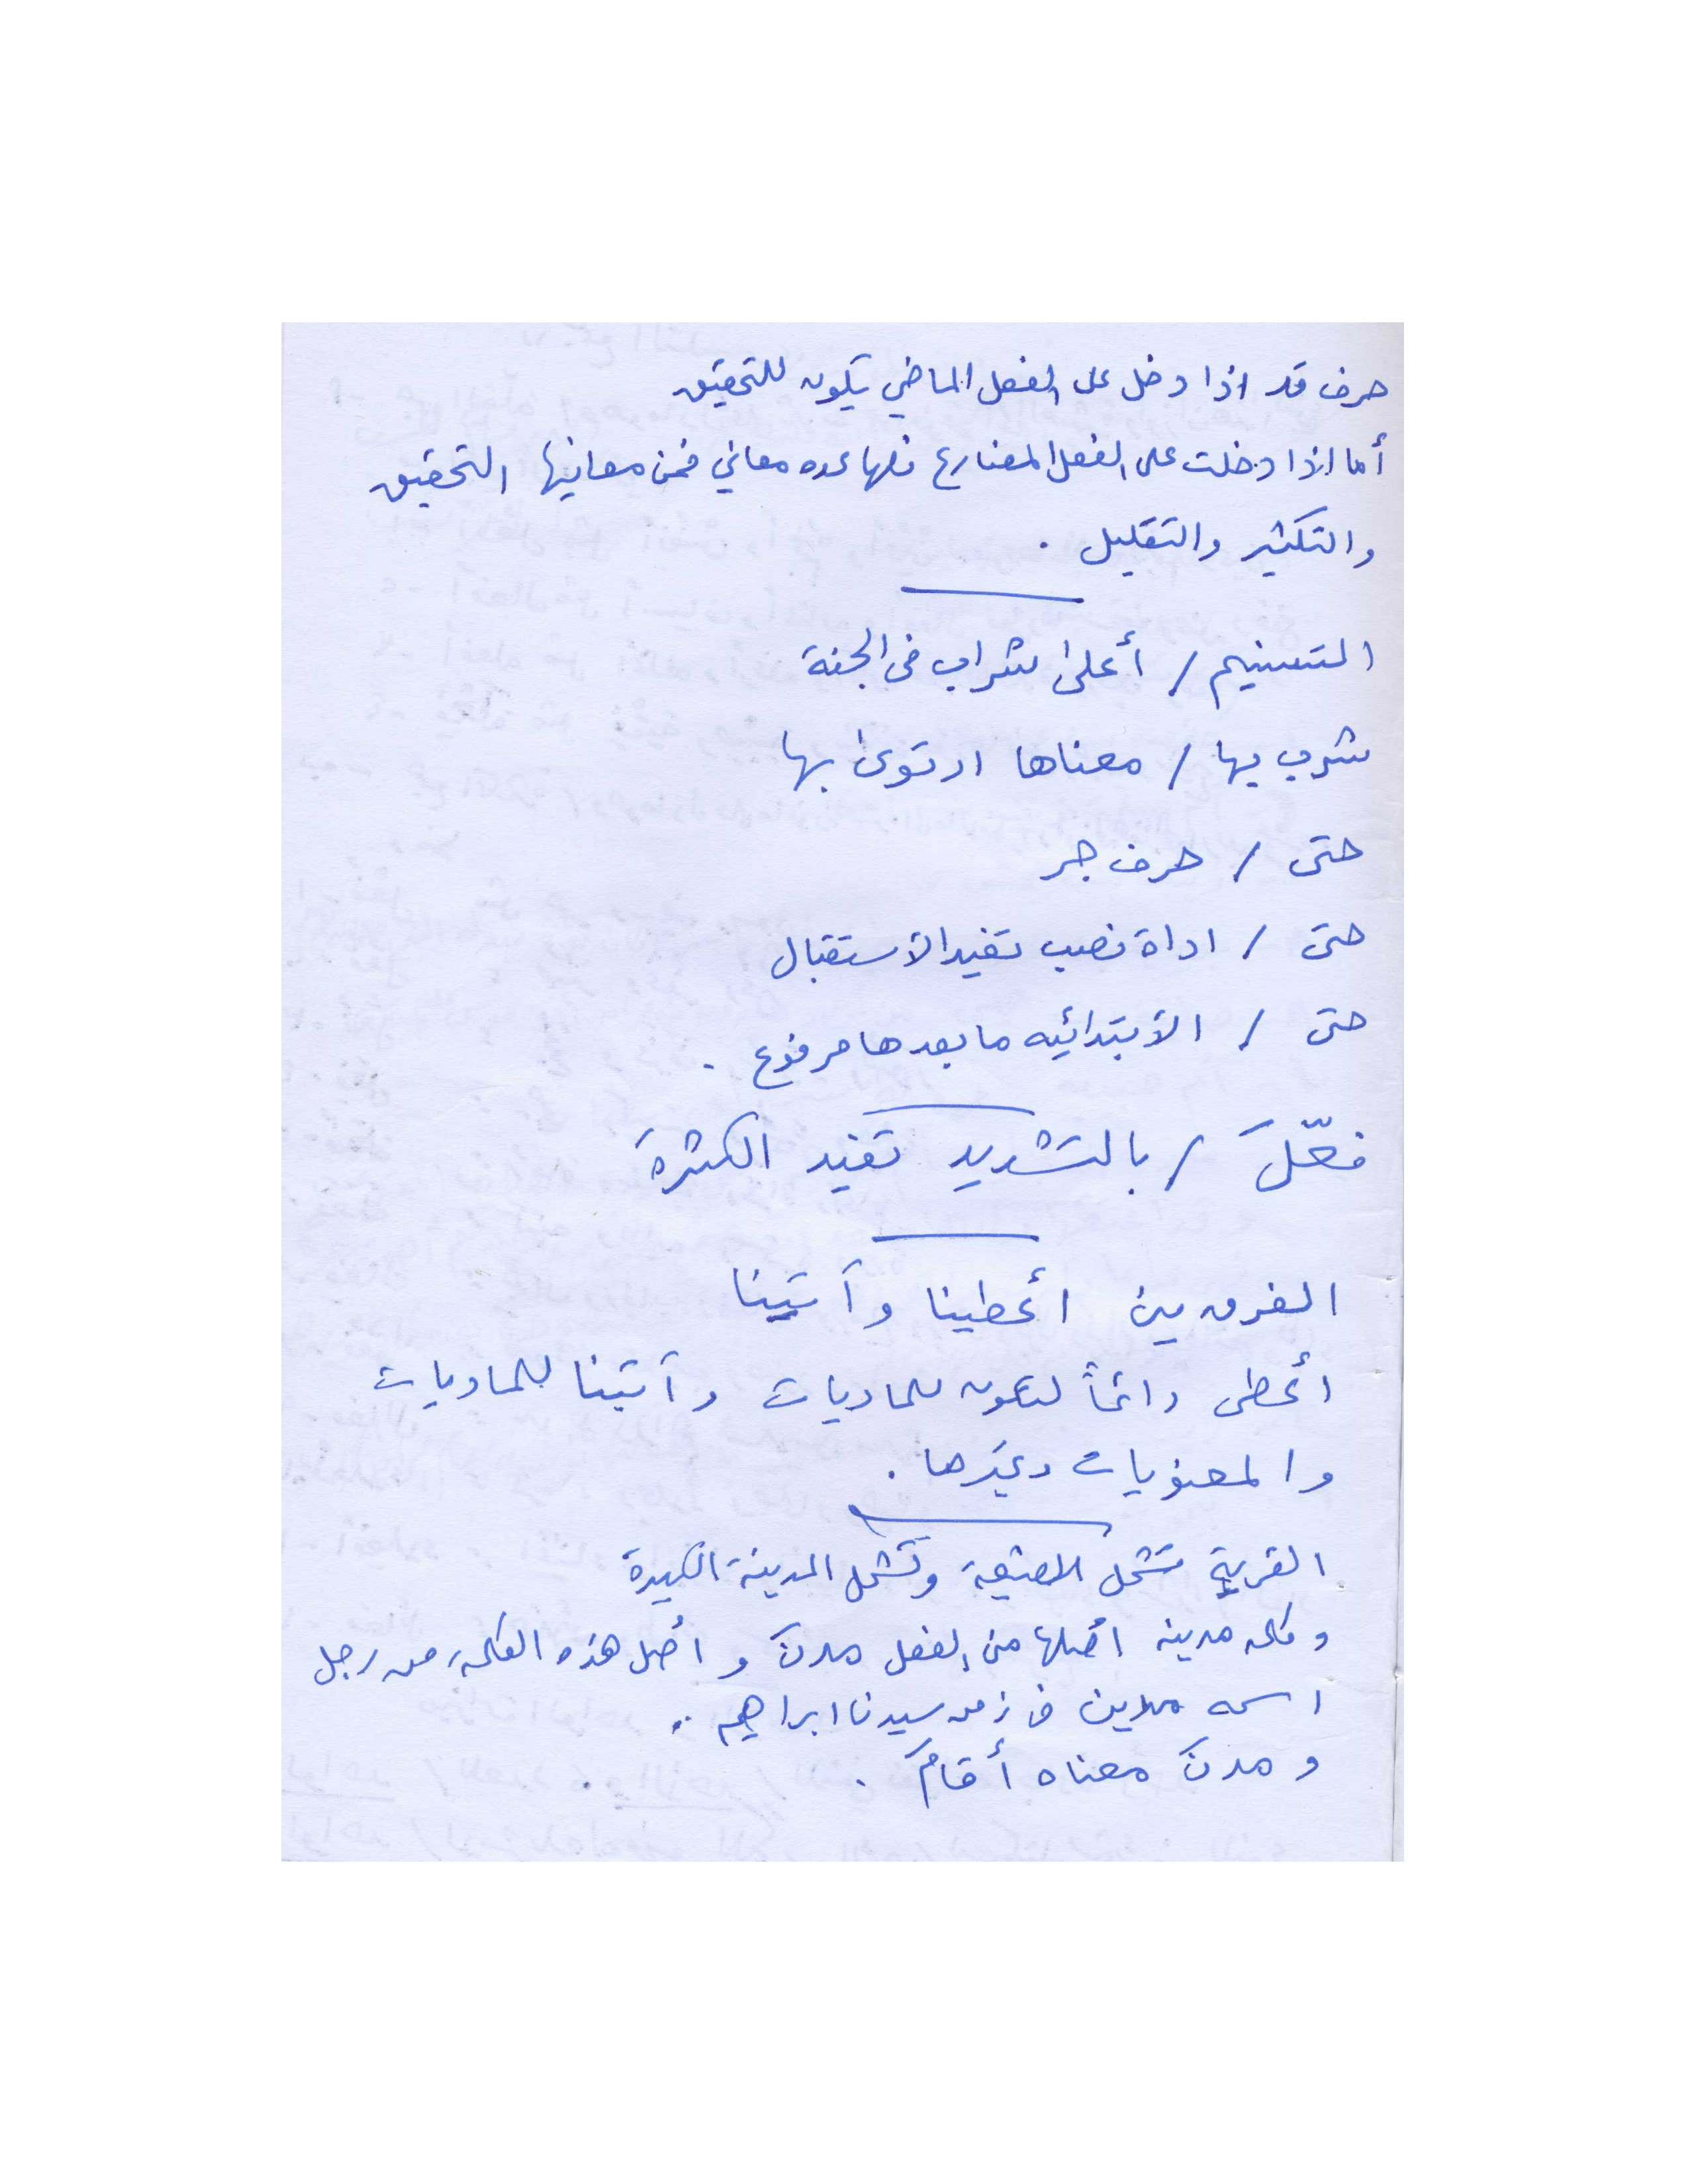 حرف قد اذا دخل على الفعل الماضي يكون للتحقيق
أما اذا دخلت على الفعل المضارع فلها عده معاني فمن معانيها التحقيق
والتكثير والتقليل .
التسنيم / أعلى شراب في الجنة
شرب بها / معناها ارتوى بها
حتى / حرف جر
حتى / اداة نصب تفيد الاستقبال
حتى / الابتدائيه ما بعدها مرفوع .
فعّلَ / بالتشديد تفيد الكثرة
الفرق بين أعطينا وآتينا
أعطى دائماً للماديات وآتينا للماديات
والمعنويات وغيرها .
القرية تشمل الضيعة وتشمل المدينة الكبيرة
وكلمه مدينه أصلها من الفعل مدنَ وأصل هذه الكلمة من رجل
اسمه مدين في زمن سيدنا ابراهيم ..
و مدنَ معناه أقامَ .